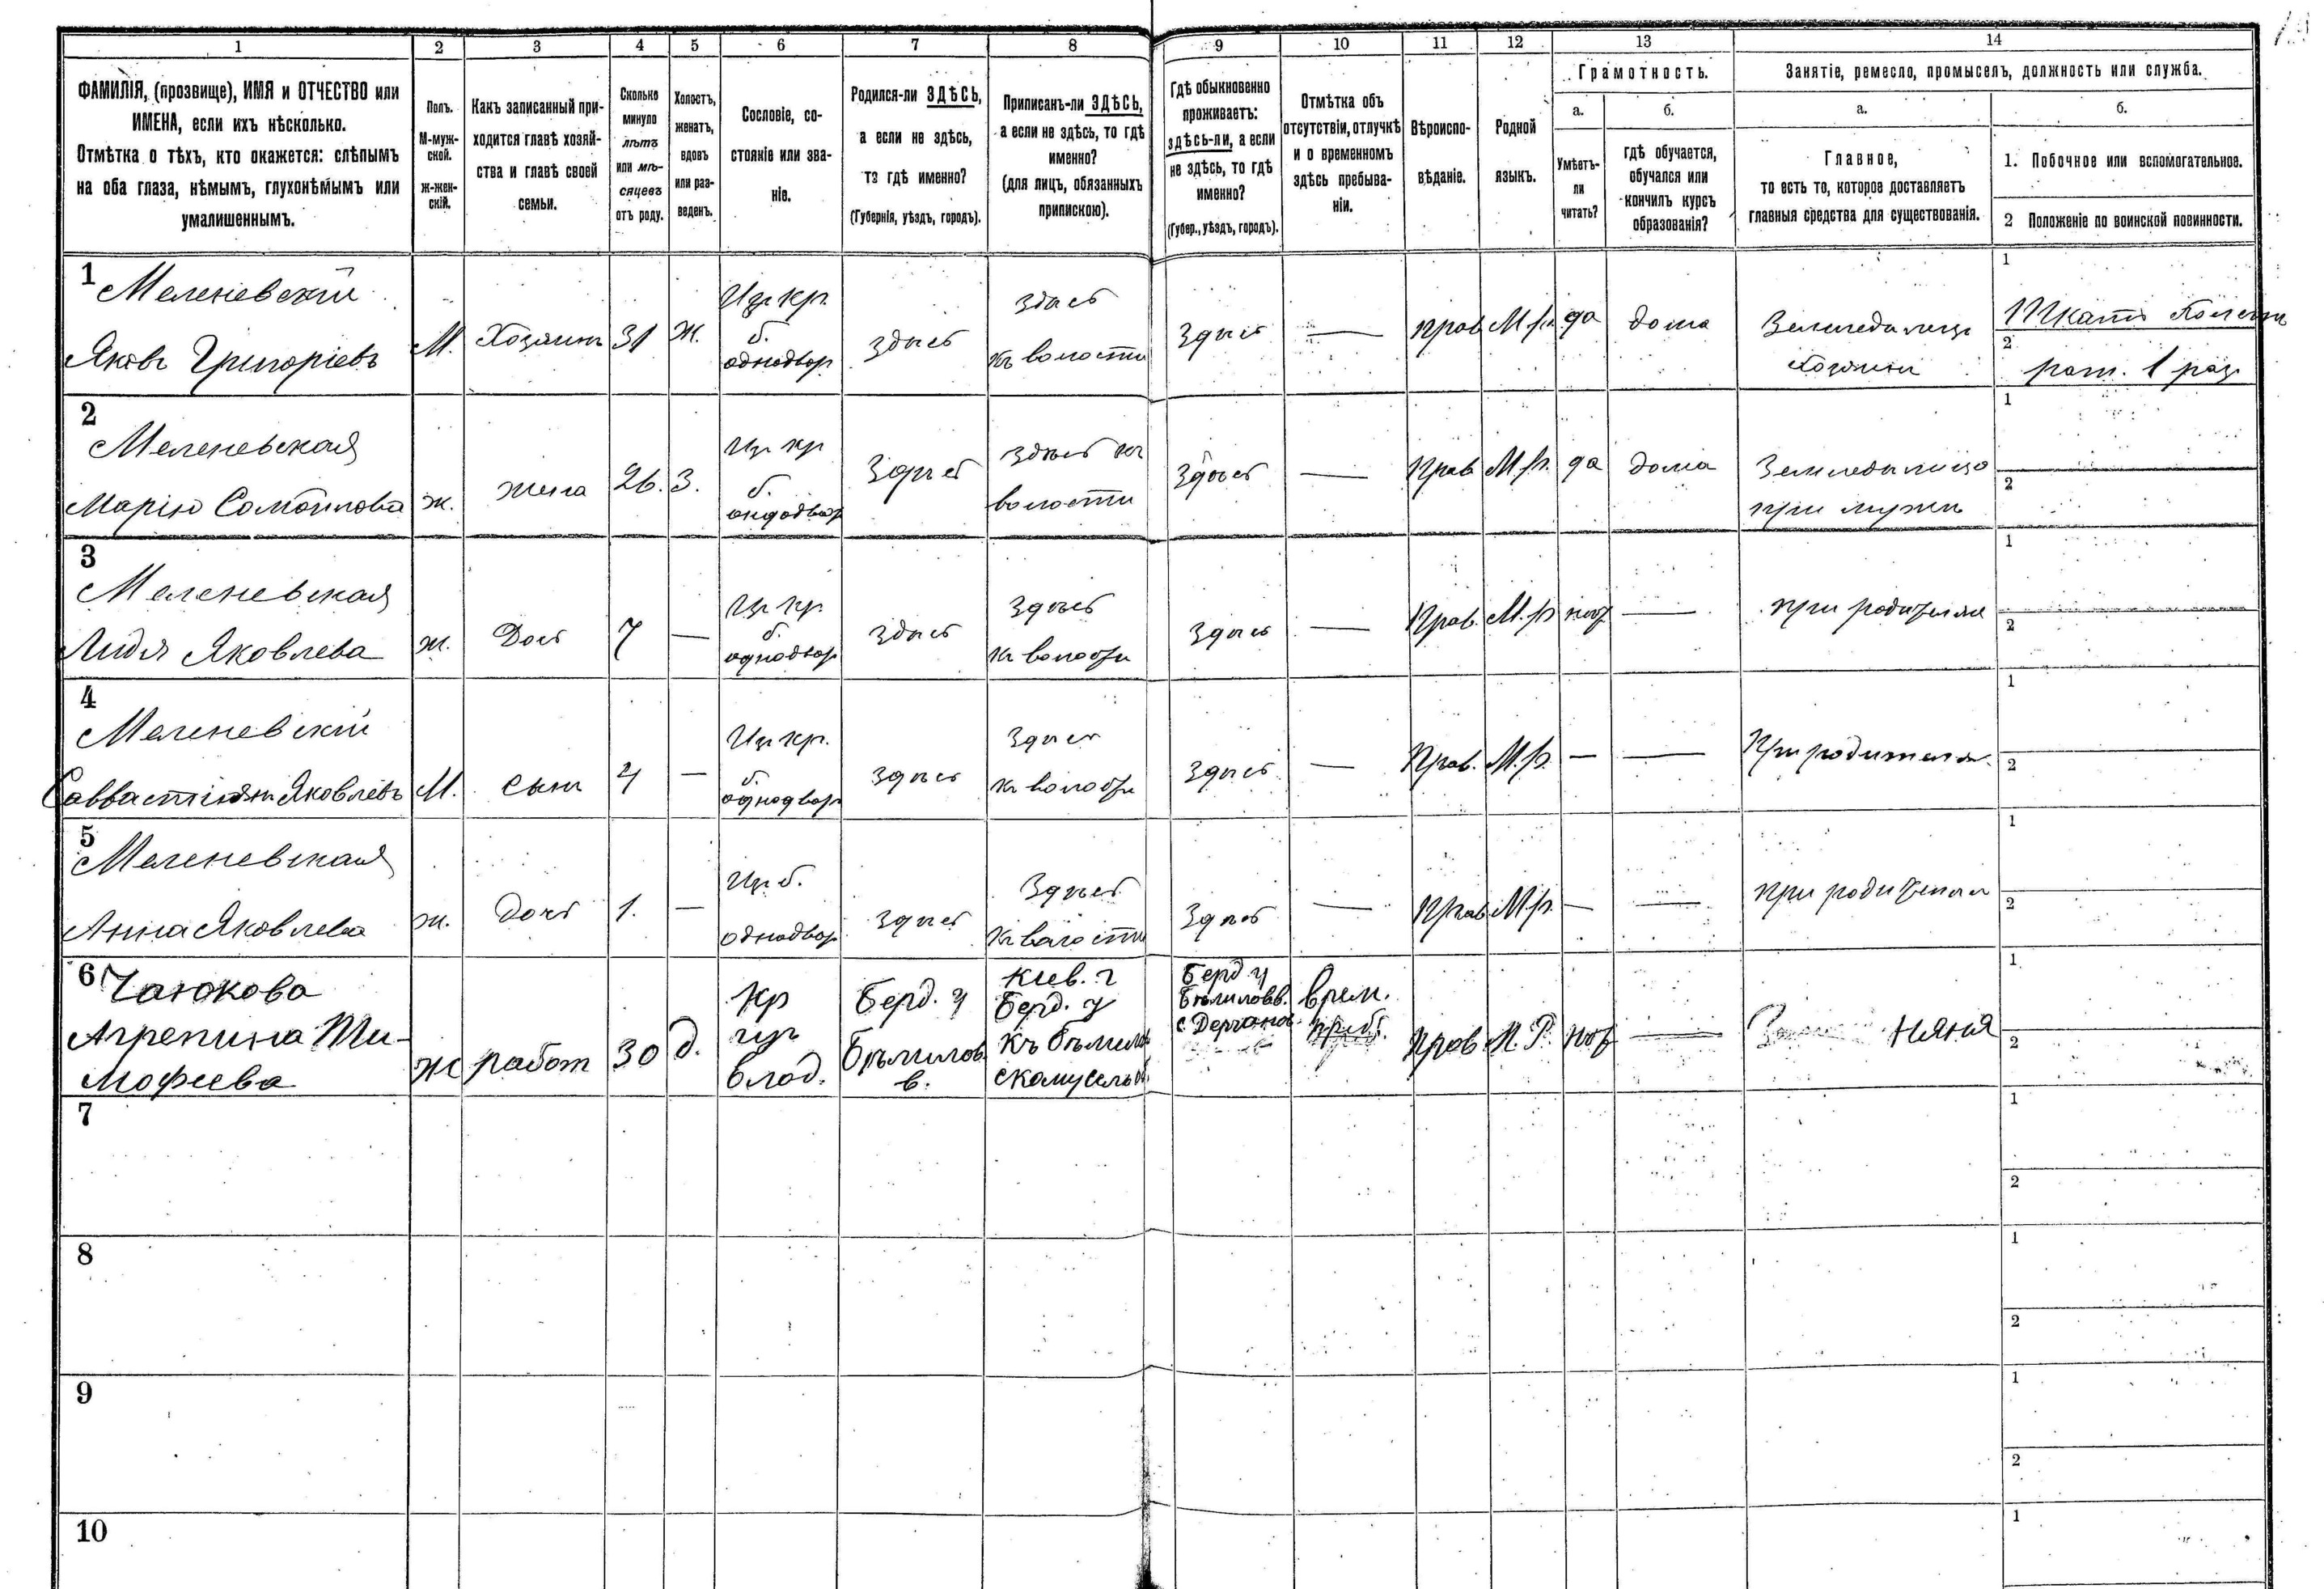 1 2 3 4 5 6 7 8 9 10 11 12 13 14
ФАМИЛІЯ, (прозвище), ИМЯ и ОТЧЕСТВО или
ИМЕНА, если ихъ нѣсколько.
Отмѣтка о тѣхъ, кто окажется: слѣпымъ
на оба глаза, нѣмымъ, глухонѣмымъ или
умалишеннымъ.
Полъ.
М-муж-
ской.
ж-жен-
скій.
Какъ записанный при-
ходится главѣ хозяй-
ства и главѣ своей
семьи.
Сколько
минуло
лѣтъ
или мѣ-
сяцевъ
отъ роду.
Холостъ,
женатъ,
вдовъ
или раз-
веденъ.
Сословіе, со-
стояніе или зва-
ніе.
Родился-ли ЗДѢСЬ,
а если не здѣсь,
то гдѣ именно?
(Губернія, уѣздъ, городъ).
Приписанъ-ли ЗДѢСЬ,
а если не здѣсь, то гдѣ
именно?
(для лицъ, обязанныхъ
припискою).
Гдѣ обыкновенно
проживаетъ:
здѣсь-ли, а если
не здѣсь, то гдѣ
именно?
(Губер., уѣздъ, городъ).
Отмѣтка объ
отсутствіи, отлучкѣ
и о временномъ
здѣсь пребыва-
ніи.
Вѣроиспо-
вѣданіе.
Родной
языкъ.
Грамотность.
а.
Умѣетъ-
ли
читать?
б.
гдѣ обучается,
обучался или
кончилъ курсъ
образованія?
Занятіе, ремесло, промыселъ, должность или служба.
а.
Главное,
то есть то, которое доставляетъ
главныя средства для существованія.
б.
1. Побочное или вспомогательное.
2 Положеніе по воинской повинности.
1
Меленевскій
Яковъ Григоріевъ
М.
Хозяинъ
31
ж.
Изъ кр.
б.
однодвор
здѣсь
здѣсь
къ волости
здѣсь
—
прав
М.р.
да
дома
Земледѣлецъ
хозяинъ
1
2
рат. 1 раз
2
Меленевская
Марія Самойлова
ж.
жена
26.
З.
Изъ кр
б.
однодвор
Здѣсь
здѣсь къ
волости
Здѣсь
—
прав
М.р.
да
дома
при мужѣ
1
2
3
Меленевская
Лидя Яковлева
ж.
Дочь
7
—
Изъ кр
б.
однодвор
здѣсь
здѣсь
къ волости
здѣсь
—
Прав.
М.р
нѣт
—
при родителя
1
2
4
Меленевскій
Саввастіянъ Яковлевъ
М.
сынъ
4
—
Изъ кр.
б.
однодвор
здѣсь
здѣсь
къ волости
здѣсь
—
Прав.
М.р.
—
—
При родителя
1
2
5
Меленевская
Анна Яковлева
ж.
дочь
1.
—
Из б.
однодвор
здѣсь
Здѣсь
къ волости
Здѣсь
—
Прав
М.р.
—
—
при родителя
1
2
6
Агрепина Ти-
мофеева
ж
работ
30
д.
Кр
изъ
влад.
Берд. у
Бѣлилов
в.
Кіев. г
Берд. у
къ Бѣлилов
скому сельоб.
Берд у
Бѣлиловв.
с Дерганов
врем.
преб.
прав
М.Р.
нѣт
—
няня
1
2
7
1
2
8
1
2
9
1
2
10
1